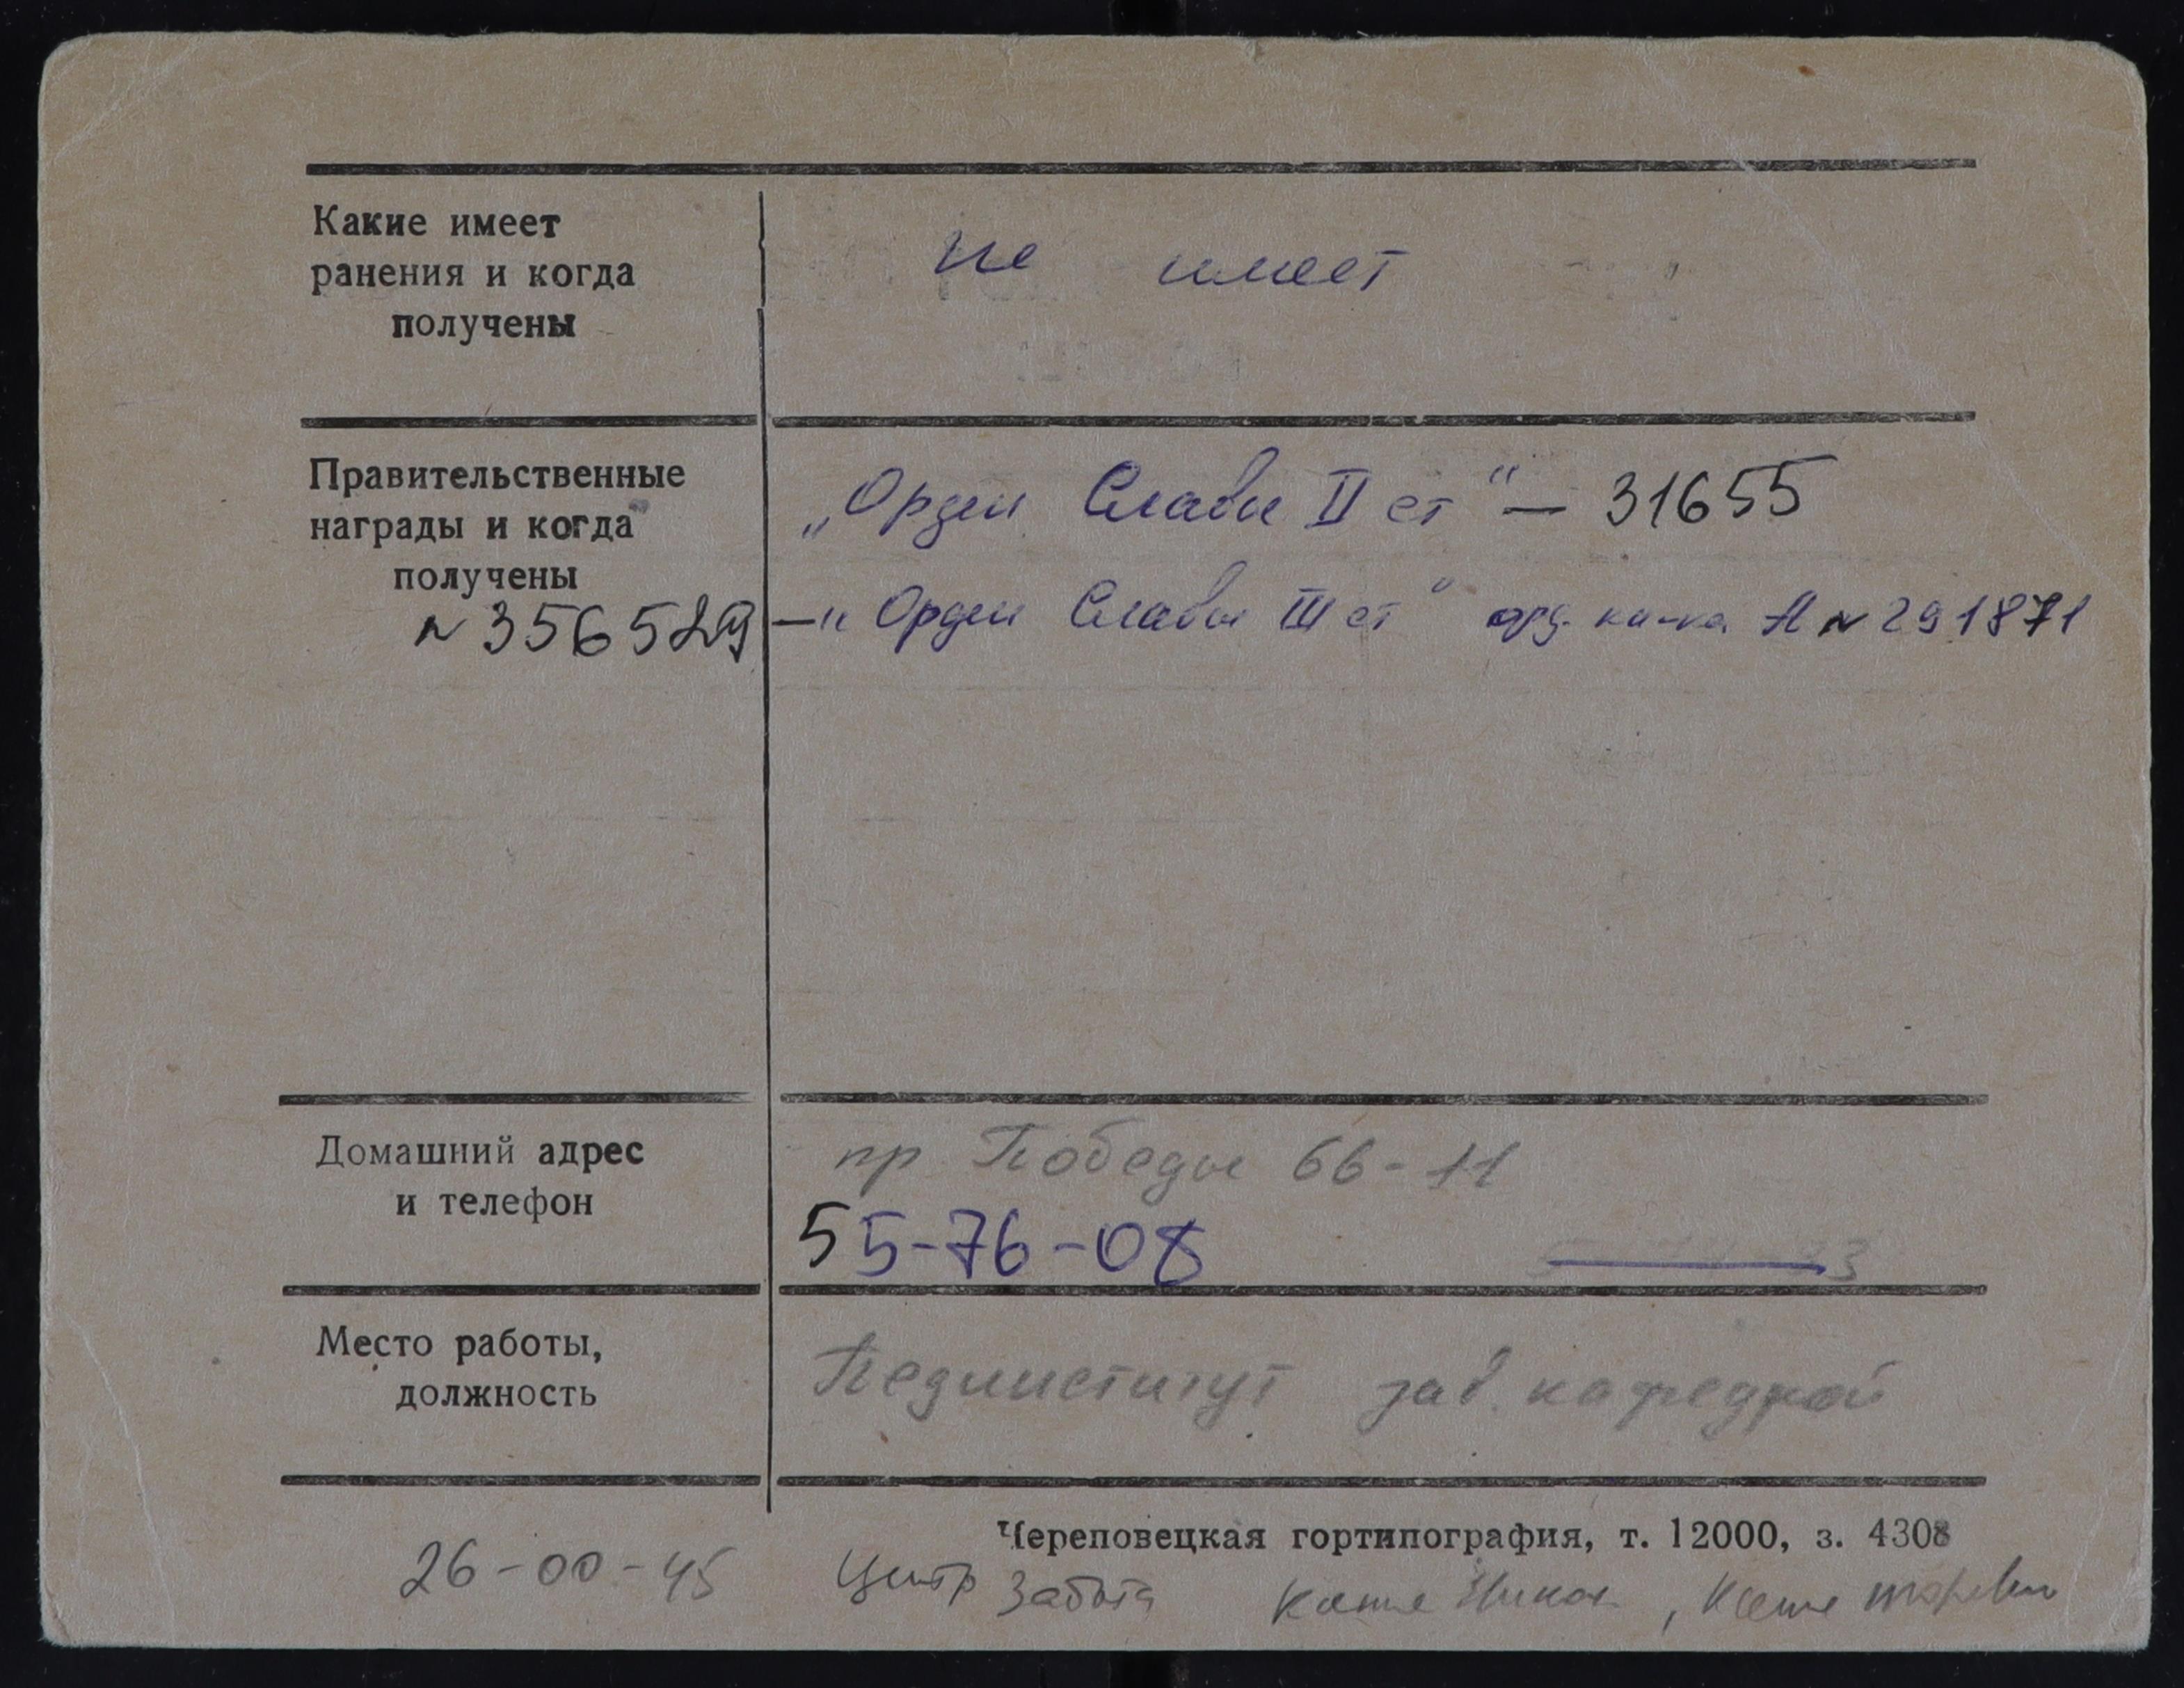 Какие имеет
ранения и когда
получены
не имеет
Правительственные
награды и когда
получены
„Орден Славы II ст“ — 31655
№ 356529 — „Орден Славы III ст“ орд. кн-ка А № 291871
Домашний адрес
и телефон
пр. Победы 66-11
55-76-08
Место работы,
должность
Пединститут зав. кафедрой
Череповецкая гортипография, т. 12000, з. 4308
26-00-45 Центр Забота